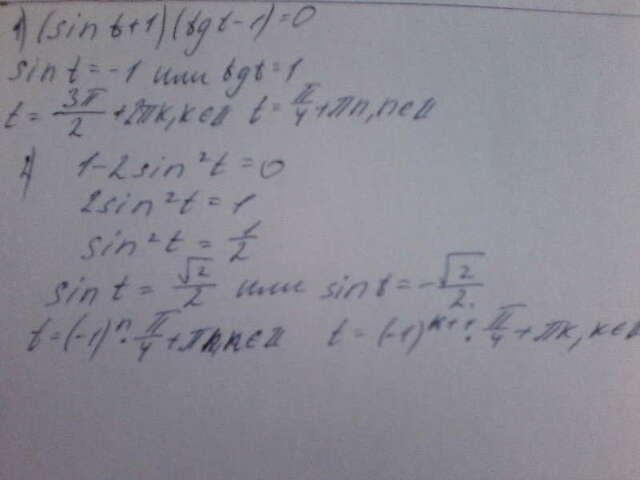 1) (sin t+1)(tgt-1)=0
sin t = -1 или tgt=1
t = 3π/2 + 2πk, k∈Z t = π/4 + πn, n∈Z
2) 1-2sin²t=0
2sin²t=1
sin²t = 1/2
sin t = √2/2 или sin t = -√2/2
t=(-1)ⁿ·π/4+πn, n∈Z t = (-1)ᵏ⁺¹·π/4+πk, k∈Z